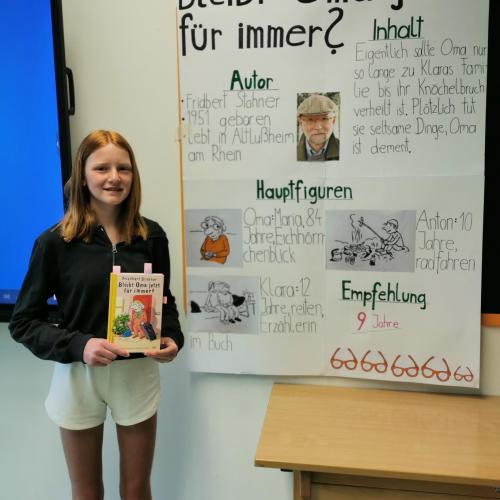 Bleibt Oma jetzt
für immer?
Autor
• Fridbert Stohner
• 1951 geboren
• Lebt in Altlußheim
am Rhein
Inhalt
Eigentlich sollte Oma nur
so lange zu Klaras Fami-
lie bis ihr Knöchelbruch
verheilt ist. Plötzlich tut
sie seltsame Dinge, Oma
ist dement.
Hauptfiguren
Oma: Maria, 84
Jahre, Eichhörn-
chenblick
Anton: 10
Jahre,
radfahren
Klara: 12
Jahre, reiten,
Erzählerin
im Buch
Empfehlung
9 Jahre
Friedbert Stohner
Bleibt Oma jetzt
für immer?